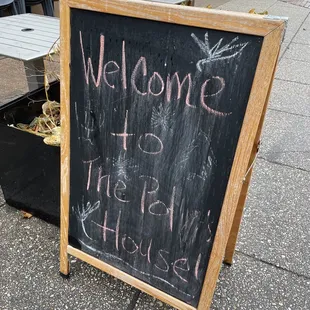 Welcome
to
The
House!